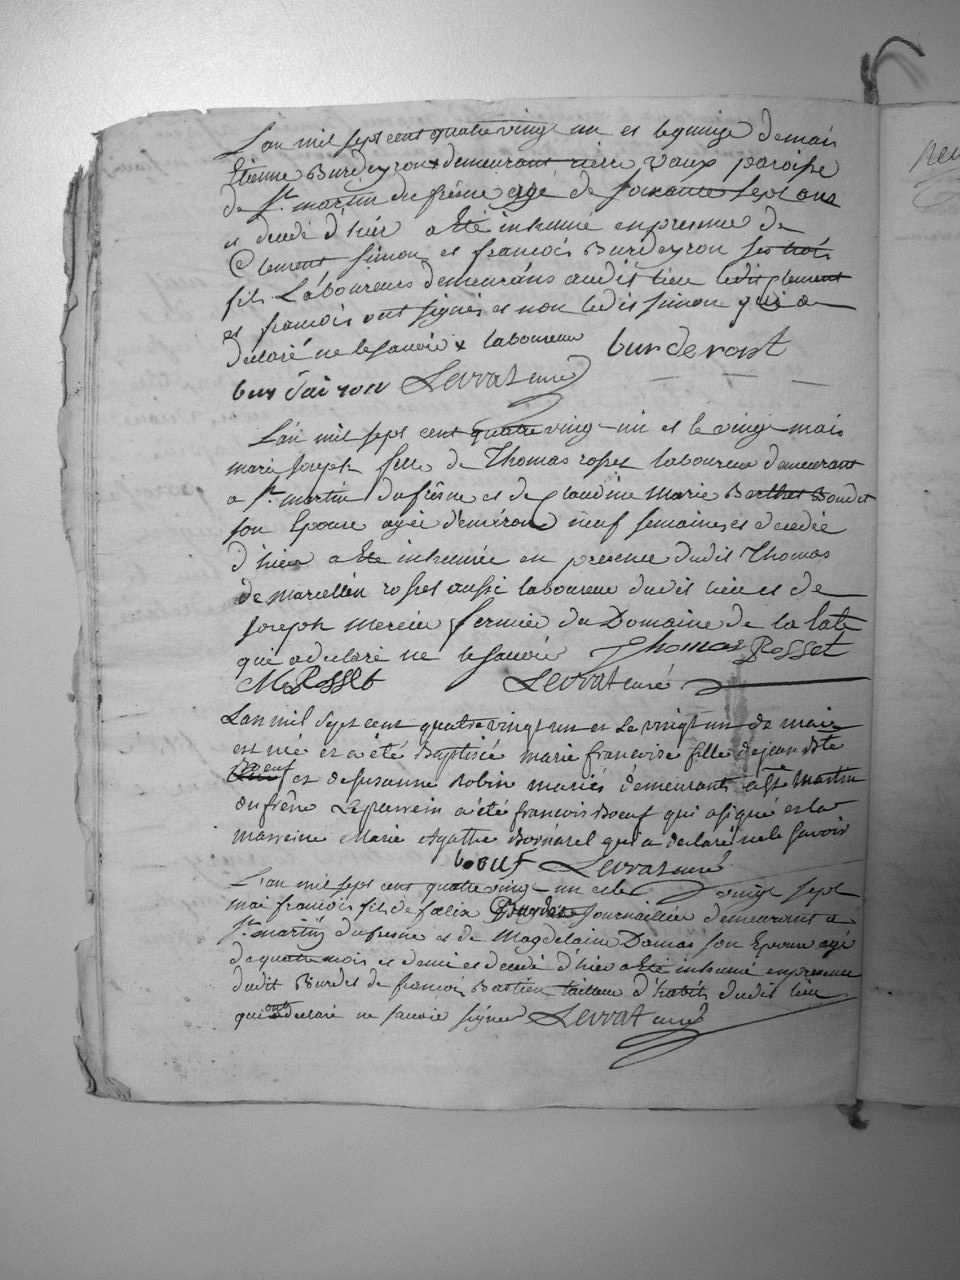 L'an mil sept cent quatre vingt un et le quinze de mai
Etienne Burdeyron x demeurant rière Vaux paroisse
de St martin du frêne agé de soixante sept ans
et decedé d'hier a Eté inhumé en presence de
Clement Simon et francois Burdeyron ses trois
fils Laboureurs demeurans audit lieu ledit Clement
et francois ont signés et non ledit Simon qui a
declaré ne le savoir x laboureur burderont
bur dai ron Levrat curé
L'an mil sept cent quatre vingt-un et le vingt mais
marie Joseph fille de Thomas rosset laboureur demeurant
a St martin du frêne et de Claudine Marie Boudet
son Epouse agée d'environ neuf semaines et decedée
d'hier a Eté inhumée en presence dudit Thomas
de marcellin rosset aussi laboureur dudit lieu et de
Joseph mercier fermier du Domaine de la
qui a declaré ne le savoir Thomas Rosset
M Rosset Levrat curé
L'an mil sept cent quatre vingt un et le vingt un de mai
est née et a été Baptisée marie francoise fille de jean Bte
Boeuf et de susanne Robin mariés demeurants a St Martin
du frêne Le parrein a été francois Boeuf qui a signé et la
marreine Marie Agathe Bornarel qui a declaré ne le savoir
boeuf Levrat curé
L'an mil sept cent quatre vingt-un et le vingt sept
mai francois fils de foelix journaillier demeurant a
St martin du frêne et de Magdelaine Damas son Epouse agé
de quatre mois et demi et decedé d'hier a Eté inhumé en presence
dudit Burdet de francois Bastien tailleur d'habits dudit lieu
qui ont declaré ne savoir signer Levrat curé